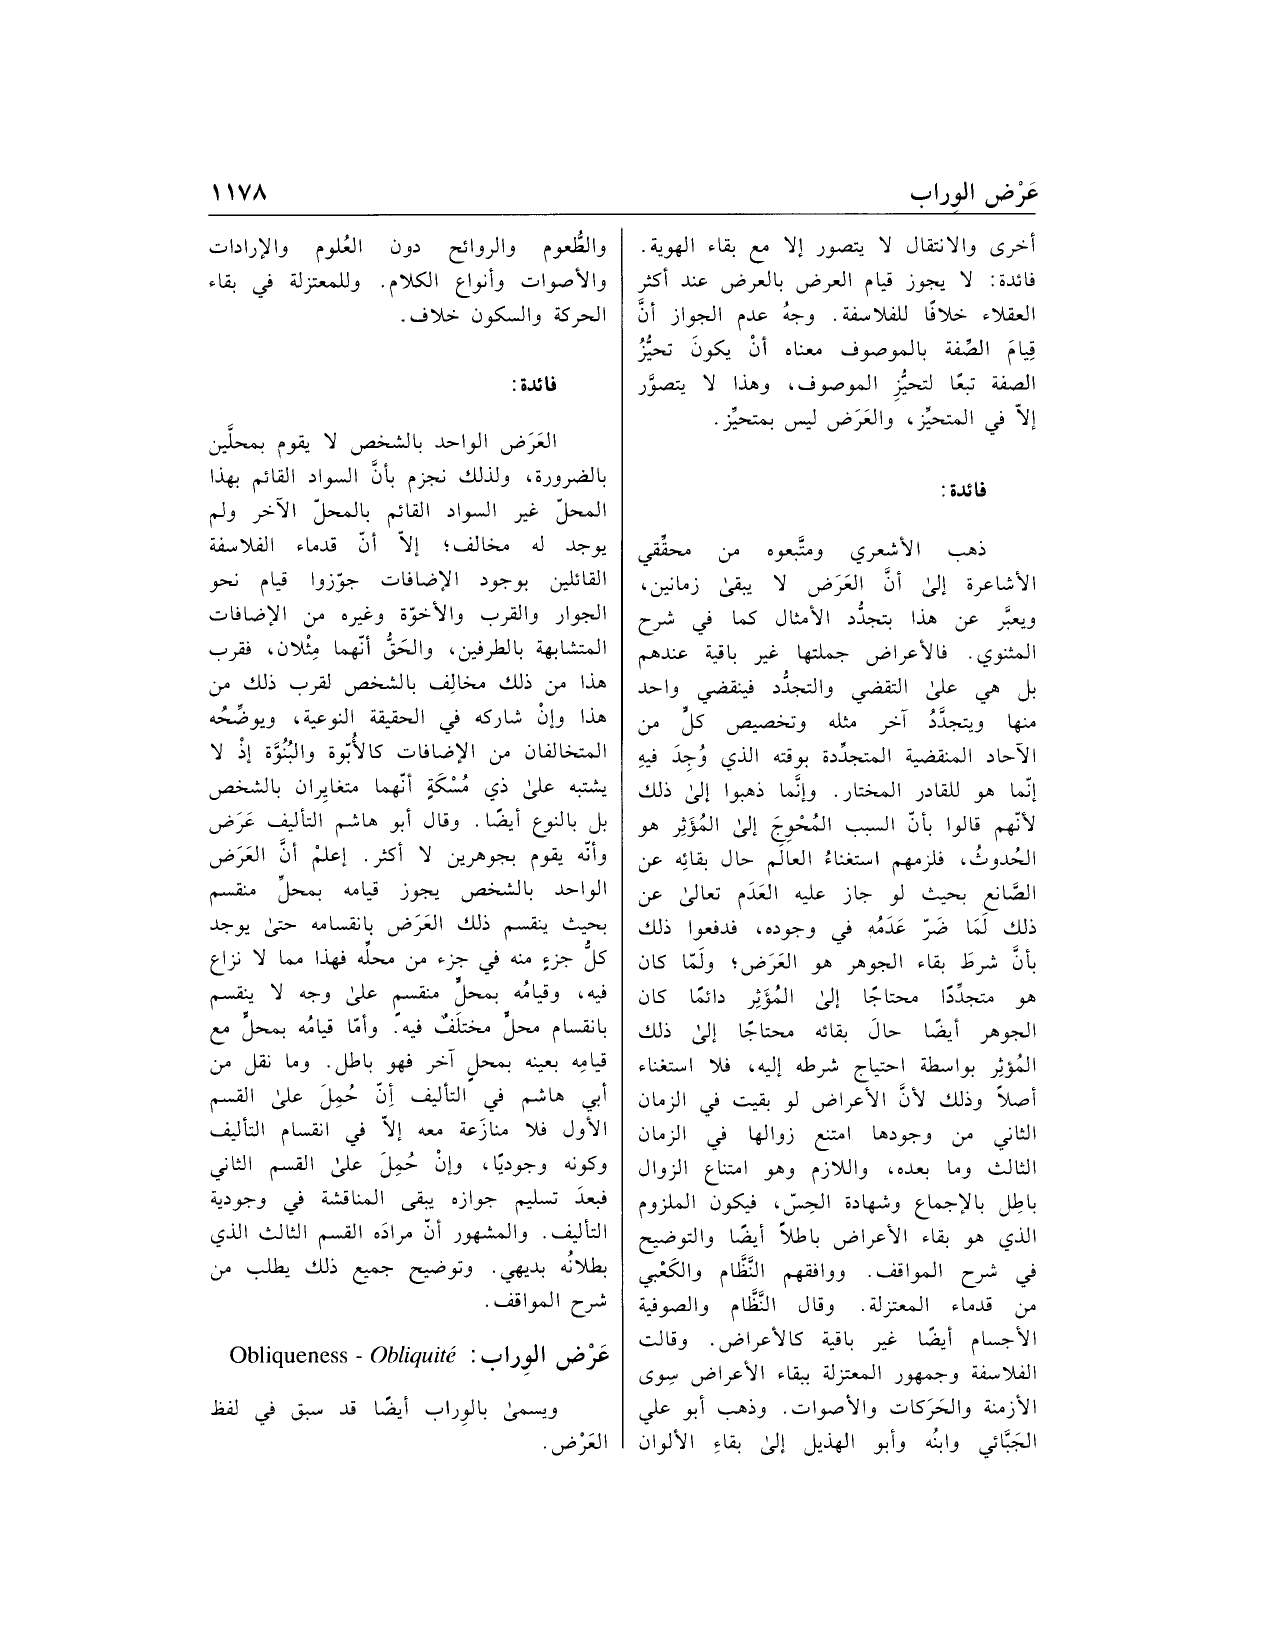 عَرْض الوِراب
١١٧٨
أخرى والانتقال لا يتصور إلا مع بقاء الهوية.
فائدة: لا يجوز قيام العرض بالعرض عند أكثر
العقلاء خلافًا للفلاسفة. وجهُ عدم الجواز أنَّ
قِيامَ الصِّفة بالموصوف معناه أنْ يكونَ تحيُّزُ
الصفة تبعًا لتحيُّزِ الموصوف، وهذا لا يتصوَّر
إلاّ في المتحيِّز، والعَرَض ليس بمتحيِّز.
فائدة:
ذهب الأشعري ومتَّبعوه من محقِّقي
الأشاعرة إلىٰ أنَّ العَرَض لا يبقىٰ زمانين،
ويعبَّر عن هذا بتجدُّد الأمثال كما في شرح
المثنوي. فالأعراض جملتها غير باقية عندهم
بل هي علىٰ التقضي والتجدُّد فينقضي واحد
منها ويتجدَّدُ آخر مثله وتخصيص كلٍّ من
الآحاد المنقضية المتجدِّدة بوقته الذي وُجِدَ فيهِ
إنّما هو للقادر المختار. وإنَّما ذهبوا إلىٰ ذلك
لأنّهم قالوا بأنّ السبب المُحْوِجَ إلىٰ المُؤَثِر هو
الحُدوثُ، فلزمهم استغناءُ العالَم حال بقائِه عن
الصَّانع بحيث لو جاز عليه العَدَم تعالىٰ عن
ذلك لَمَا ضَرّ عَدَمُه في وجوده، فدفعوا ذلك
بأنَّ شرطَ بقاء الجوهر هو العَرَض؛ ولَمّا كان
هو متجدِّدًا محتاجًا إلىٰ المُؤَثِر دائمًا كان
الجوهر أيضًا حالَ بقائه محتاجًا إلىٰ ذلك
المُؤثِر بواسطة احتياج شرطه إليه، فلا استغناء
أصلاً وذلك لأنَّ الأعراض لو بقيت في الزمان
الثاني من وجودها امتنع زوالها في الزمان
الثالث وما بعده، واللازم وهو امتناع الزوال
باطِل بالإجماع وشهادة الحِسّ، فيكون الملزوم
الذي هو بقاء الأعراض باطلاً أيضًا والتوضيح
في شرح المواقف. ووافقهم النَّظَّام والكَعْبي
من قدماء المعتزلة. وقال النَّظَّام والصوفية
الأجسام أيضًا غير باقية كالأعراض. وقالت
الفلاسفة وجمهور المعتزلة ببقاء الأعراض سِوى
الأزمنة والحَرَكات والأصوات. وذهب أبو علي
الجَبَّائي وابنُه وأبو الهذيل إلىٰ بقاءِ الألوان
والطُّعوم والروائح دون العُلوم والإرادات
والأصوات وأنواع الكلام. وللمعتزلة في بقاء
الحركة والسكون خلاف.
فائدة:
العَرَض الواحد بالشخص لا يقوم بمحلَّين
بالضرورة، ولذلك نجزم بأنَّ السواد القائم بهذا
المحلّ غير السواد القائم بالمحلّ الآخر ولم
يوجد له مخالف؛ إلاّ أنّ قدماء الفلاسفة
القائلين بوجود الإضافات جوّزوا قيام نحو
الجوار والقرب والأخوّة وغيره من الإضافات
المتشابهة بالطرفين، والحَقُّ أنّهما مِثْلان، فقرب
هذا من ذلك مخالِف بالشخص لقرب ذلك من
هذا وإنْ شاركه في الحقيقة النوعية، ويوضِّحُه
المتخالفان من الإضافات كالأُبّوة والبُنُوَّة إذْ لا
يشتبه علىٰ ذي مُسْكَةٍ أنّهما متغايِران بالشخص
بل بالنوع أيضًا. وقال أبو هاشم التأليف عَرَض
وأنّه يقوم بجوهرين لا أكثر. إعلمْ أنَّ العَرَض
الواحد بالشخص يجوز قيامه بمحلٍّ منقسم
بحيث ينقسم ذلك العَرَض بانقسامه حتىٰ يوجد
كلُّ جزءٍ منه في جزء من محلِّه فهذا مما لا نزاع
فيه، وقيامُه بمحلٍّ منقسمٍ علىٰ وجه لا ينقسم
بانقسام محلٍّ مختلَفٌ فيه. وأمّا قيامُه بمحلٍّ مع
قيامِه بعينه بمحلٍ آخر فهو باطل. وما نقل من
أبي هاشم في التأليف أِنّ حُمِلَ علىٰ القسم
الأول فلا منازَعة معه إلاّ في انقسام التأليف
وكونه وجوديًا، وإنْ حُمِلَ علىٰ القسم الثاني
فبعدَ تسليم جوازه يبقى المناقشة في وجودية
التأليف. والمشهور أنّ مرادَه القسم الثالث الذي
بطلانُه بديهي. وتوضيح جميع ذلك يطلب من
شرح المواقف.
عَرْض الوِراب: Obliqueness - Obliquité
ويسمىٰ بالوِراب أيضًا قد سبق في لفظ
العَرْض.